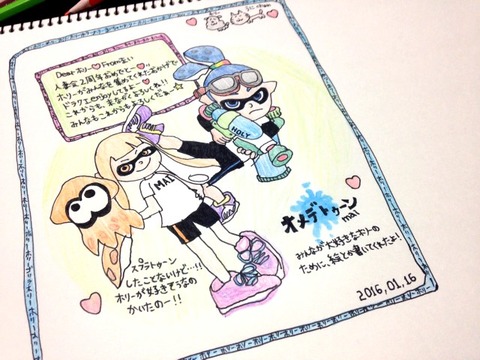 Dear ホリー♡From まい
人妻会2周年おめでとー♡
ホリーがみんなを集めてくれたおかげで
ドラクエenjoyしてるよー♡
これからも、まなかよろしくね!!
みんなもこれからもよろしくでーす☆
HOLY
MAI
オメデトゥーン
MAI
みんなが大好きなホリーの
ために、絵とか書いてくれたよ!
スプラトゥーン
したことないけど…!!
ホリーが好きそうなの
かいたのー!!
2016,01.16